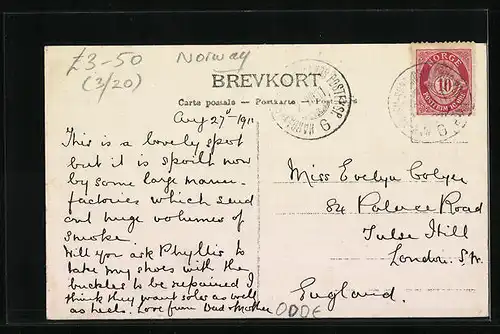 £3-50
(3/20)
Norway
BREVKORT
Carte postale — Postkarte — Post
NORGE
10
POSTFRIM
6
6
Aug 27th 1911
This is a lovely spot
but it is spoilt now
by some large manu-
factories which send
out huge volumes of
smoke.
Will you ask Phyllis to
take my shoes with the
buckles to be repaired I
think they want soles as well
as heels. Love from Dad & Mother
Miss Evelyn Colyer
84 Palace Road
Tulse Hill
London. S.W.
England.
ODDE